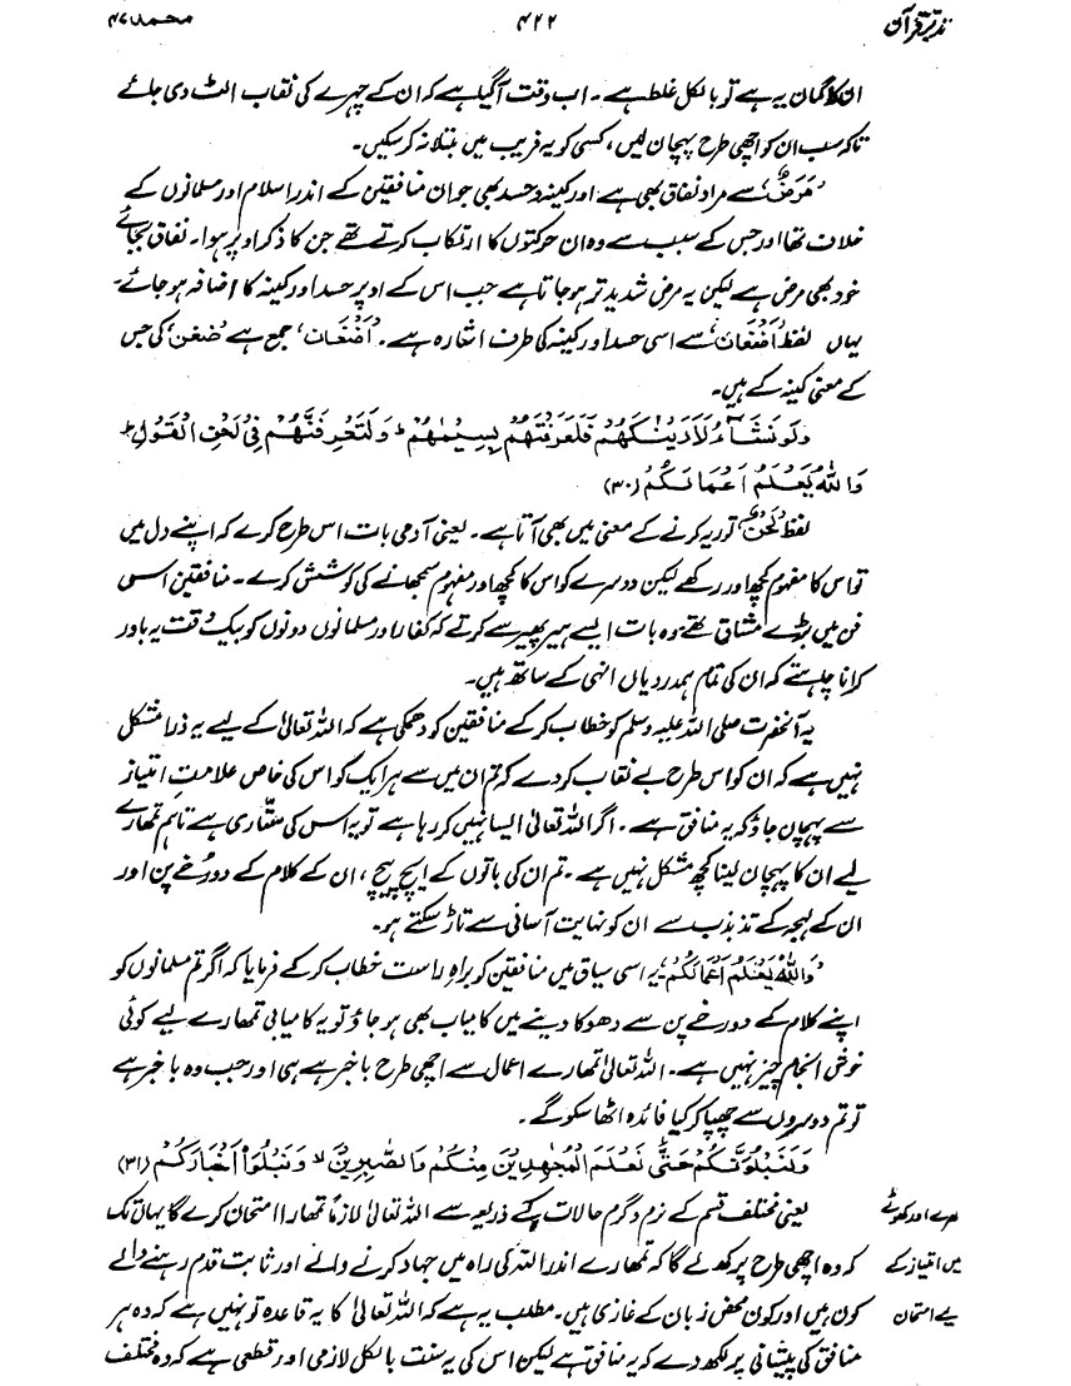 تدبر قرآن ۴۲۲ محمد ۴۷
ان کا گمان یہ ہے تو بالکل غلط ہے۔ اب وقت آ گیا ہے کہ ان کے چہرے کی نقاب الٹ دی جائے
تاکہ سب ان کو اچھی طرح پہچان لیں، کسی کو یہ فریب میں مبتلا نہ کر سکیں۔
’مَرَضٌ‘ سے مراد نفاق بھی ہے اور کینہ و حسد بھی جو ان منافقین کے اندر اسلام اور مسلمانوں کے
خلاف تھا اور جس کے سبب سے وہ ان حرکتوں کا ارتکاب کرتے تھے جن کا ذکر اوپر ہوا۔ نفاق بجائے
خود بھی مرض ہے لیکن یہ مرض شدید تر ہو جاتا ہے جب اس کے اوپر حسد اور کینہ کا اضافہ ہو جائے۔
یہاں لفظ ’اَضْغَان‘ سے اسی حسد اور کینہ کی طرف اشارہ ہے۔ ’اَضْغَان‘ جمع ہے ’ضغن‘ کی جس
کے معنی کینہ کے ہیں۔
وَلَوْ نَشَآءُ لَاَرَيْنٰكَهُمْ فَلَعَرَفْتَهُمْ بِسِيْمٰهُمْ ؕ وَلَتَعْرِفَنَّهُمْ فِيْ لَحْنِ الْقَوْلِ ؕ
وَاللّٰهُ يَعْلَمُ اَعْمَالَكُمْ (۳۰)
لفظ ’لَحْنٌ‘ توریہ کرنے کے معنی میں بھی آتا ہے۔ یعنی آدمی بات اس طرح کرے کہ اپنے دل میں
تو اس کا مفہوم کچھ اور رکھے لیکن دوسرے کو اس کا کچھ اور مفہوم سمجھانے کی کوشش کرے۔ منافقین اس
فن میں بڑے مشاق تھے۔ وہ بات ایسے ہیر پھیر سے کرتے کہ کفار اور مسلمانوں دونوں کو بیک وقت یہ باور
کرانا چاہتے کہ ان کی تمام ہمدردیاں انہی کے ساتھ ہیں۔
یہ آنحضرت صلی اللہ علیہ وسلم کو خطاب کر کے منافقین کو دھمکی ہے کہ اللہ تعالیٰ کے لیے یہ ذرا مشکل
نہیں ہے کہ ان کو اس طرح بے نقاب کر دے کہ تم ان میں سے ہر ایک کو اس کی خاص علامتِ امتیاز
سے پہچان جاؤ کہ یہ منافق ہے۔ اگر اللہ تعالیٰ ایسا نہیں کر رہا ہے تو یہ اس کی ستّاری ہے تاہم تمھارے
لیے ان کا پہچان لینا کچھ مشکل نہیں ہے۔ تم ان کی باتوں کے ایچ پیچ، ان کے کلام کے دو رُخے پن اور
ان کے لہجہ کے تذبذب سے ان کو نہایت آسانی سے تاڑ سکتے ہو۔
’وَاللّٰهُ يَعْلَمُ اَعْمَالَكُمْ‘ یہ اسی سیاق میں منافقین کو براہِ راست خطاب کر کے فرمایا کہ اگر تم مسلمانوں کو
اپنے کلام کے دو رخے پن سے دھوکا دینے میں کامیاب بھی ہو جاؤ تو یہ کامیابی تمھارے لیے کوئی
خوش انجام چیز نہیں ہے۔ اللہ تعالیٰ تمھارے اعمال سے اچھی طرح باخبر ہے ہی اور جب وہ باخبر ہے
تو تم دوسروں سے چھپا کر کیا فائدہ اٹھا سکو گے۔
وَلَنَبْلُوَنَّكُمْ حَتّٰى نَعْلَمَ الْمُجٰهِدِيْنَ مِنْكُمْ وَالصّٰبِرِيْنَ ۙ وَنَبْلُوَا۟ اَخْبَارَكُمْ (۳۱)
یعنی مختلف قسم کے نرم و گرم حالات کے ذریعہ سے اللہ تعالیٰ لازماً تمھارا امتحان کرے گا یہاں تک
کھرے اور کھوٹے
کہ وہ اچھی طرح پرکھ لے گا کہ تمھارے اندر اللہ کی راہ میں جہاد کرنے والے اور ثابت قدم رہنے والے
میں امتیاز کے
کون ہیں اور کون محض زبان کے غازی ہیں۔ مطلب یہ ہے کہ اللہ تعالیٰ کا یہ قاعدہ تو نہیں ہے کہ وہ ہر
لیے امتحان
منافق کی پیشانی پر لکھ دے کہ یہ منافق ہے لیکن اس کی یہ سنت بالکل لازمی اور قطعی ہے کہ وہ مختلف